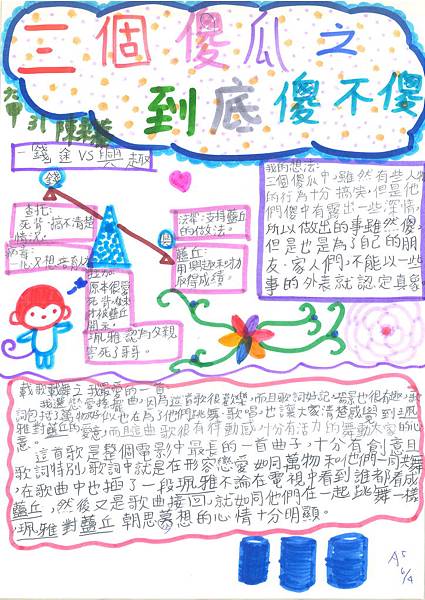 三個傻瓜之
到底傻不傻
六甲 31 陳
一錢途vs興趣
錢
查托:
死背,搞不清楚
情況。
法蘭:支持藍丘
的做法。
興
藍丘:
用興趣和努力
取得成績。
拉加:
原本很愛
死背,後來
才被藍丘
開示。
珮雅認為父親
害死了哥哥。
我的想法:
三個傻瓜中,雖然有些人物
的行為十分搞笑,但是他
們傻中有露出一些深情,
所以做出的事雖然傻,
但是也是為了自己的朋
友、家人們,不能以一些
事的外表就認定真象。
載歌載舞之我最愛的一首:
我選戀愛接龍曲,因為這首歌很歡樂,而且歌詞好記,場景也很有趣,歌
詞包括了萬物好似也在為了他們跳舞、歌唱,也讓大家清楚感覺到珮
雅對藍丘的愛意,而且這曲歌很有律動感,十分有活力的舞動大家的心
意。
這首歌是整個電影中最長的一首曲子,十分有創意且
歌詞特別,歌詞中就是在形容戀愛如同萬物和他們一同共舞
在歌曲中也插了一段珮雅不論在電視中看到誰都看成
藍丘,然後又是歌曲接回,就如同他們在一起跳舞一樣
,珮雅對藍丘朝思慕想的心情十分明顯。
A+
6/4